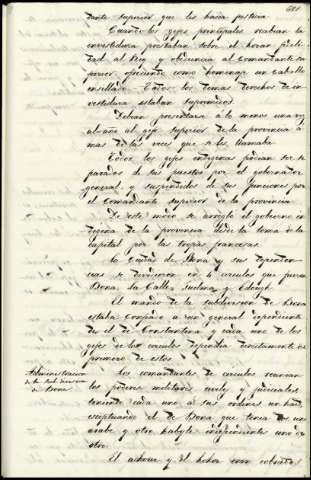 dante superior que les hacia justicia.
Cuando los gefes principales recibian la
investidura prestaban sobre el Koran fideli
dad al Rey y obediencia al Comandante su
perior, ofreciendo como homenage un caballo
ensillado. Todos los demas derechos de in
vestidura estaban suprimidos.
Debian presentarse á lo menos una vez
al año al gefe superior de la provincia á
mas de las veces que se les llamaba.
Todos los gefes indigenas podian ser se
parados de sus puestos por el gobernador
general y suspendidos de sus funciones por
el Comandante superior de la provincia.
De este modo se arregló el gobierno in
digena de la provincia desde la toma de la
capital por las tropas francesas.
La Ciudad de Bona y sus dependen
cias se dividieron en 4 circulos que fueron
Bona, la Calle, Guelma y Edough.
El mando de la subdivision de Bona
estaba confiado á un general dependiente
del de Constantina y cada uno de los
gefes de los circulos dependia directamente del
primero de estos.
Administracion
de la Sub division
de Bona
Los comandantes de circulos reunian
los poderes militares, civiles y judiciales,
teniendo cada uno á sus ordenes un kaid,
esceptuando el de Bona que tenia dos uno
arabe y otro kabyle independiente uno de
otro.
El achour y el hokor eran cobrados